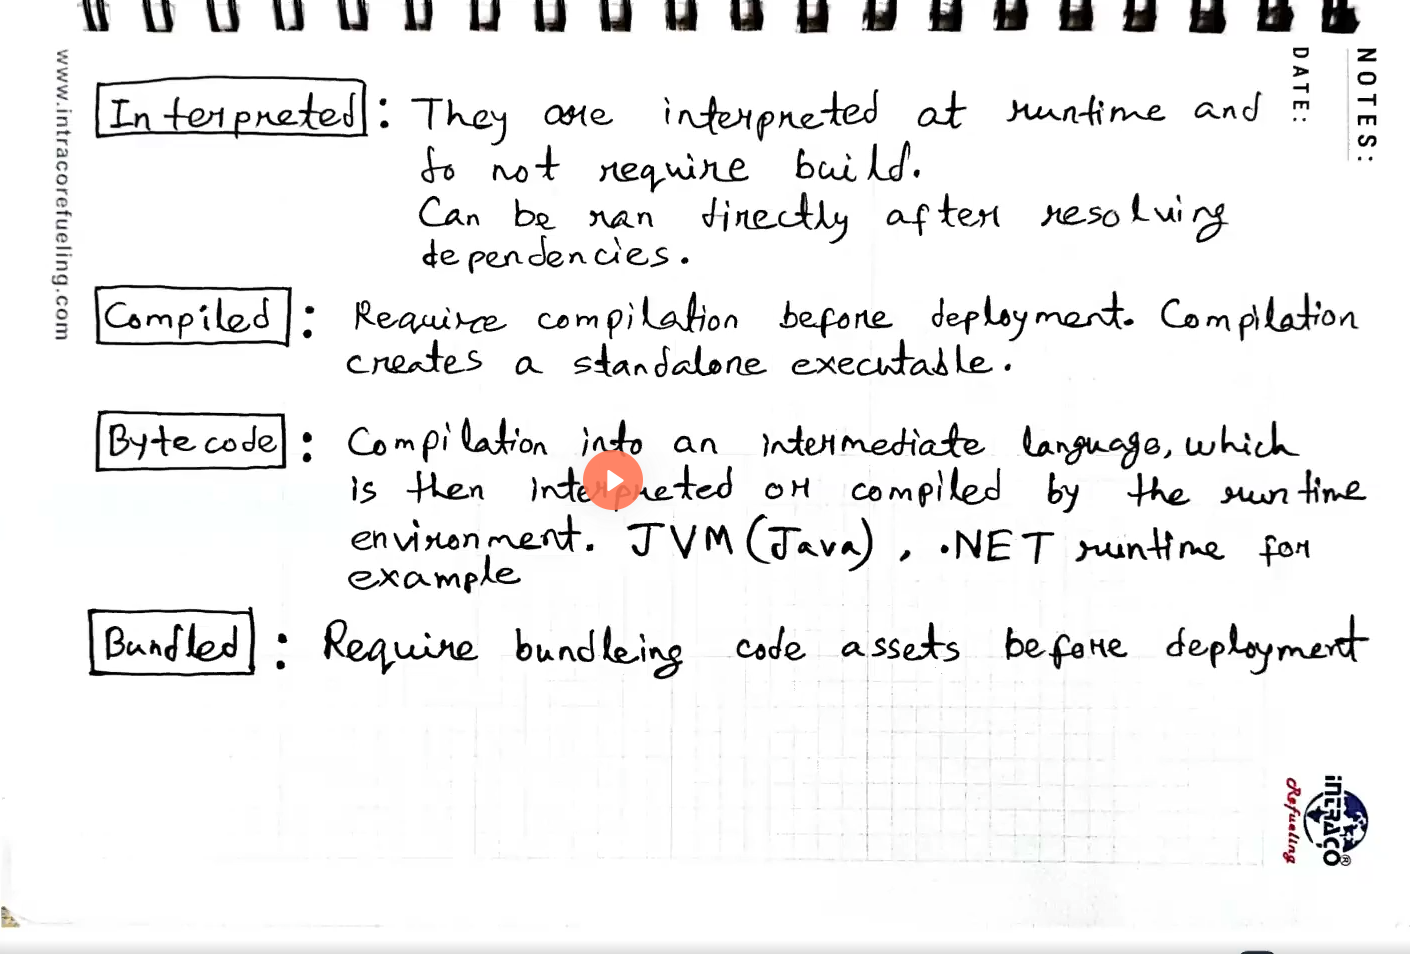 NOTES:
DATE:
www.intracorefueling.com
Interpreted : They are interpreted at runtime and
do not require build.
Can be ran directly after resolving
dependencies.
Compiled : Require compilation before deployment. Compilation
creates a standalone executable.
Bytecode : Compilation into an intermediate language, which
is then interpreted or compiled by the runtime
environment. JVM (Java), .NET runtime for
example
Bundled : Require bundleing code assets before deployment
inTRACO®
Refueling